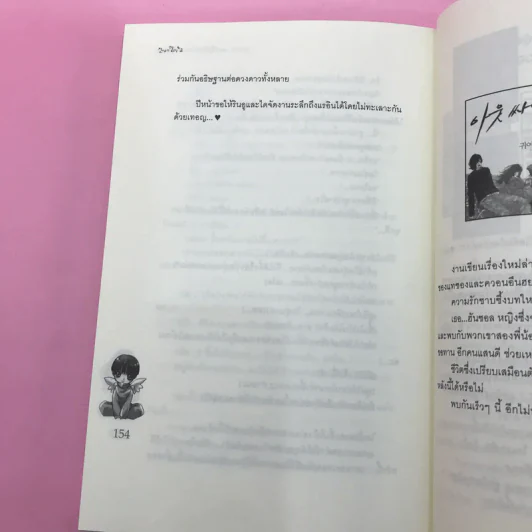 ร่วมกันอธิษฐานต่อดวงดาวทั้งหลาย
ปีหน้าขอให้รินอูและไดจัดงานระลึกถึงแรอินได้โดยไม่ทะเลาะกัน
ด้วยเทอญ... ♥
154
아웃싸
งานเขียนเรื่องใหม่ล่า
ของแทซองและควอนอึนฮย
ความรักซาบซึ้งบทให
เธอ...ฮันซอล หญิงซึ่ง
และพบกับพวกเขาสองพี่น้อ
ขอทาน อีกคนแสนดี ช่วยเห
ชีวิตซึ่งเปรียบเสมือนต้
หลังนี้ได้หรือไม่
พบกันเร็วๆ นี้ อีกไม่